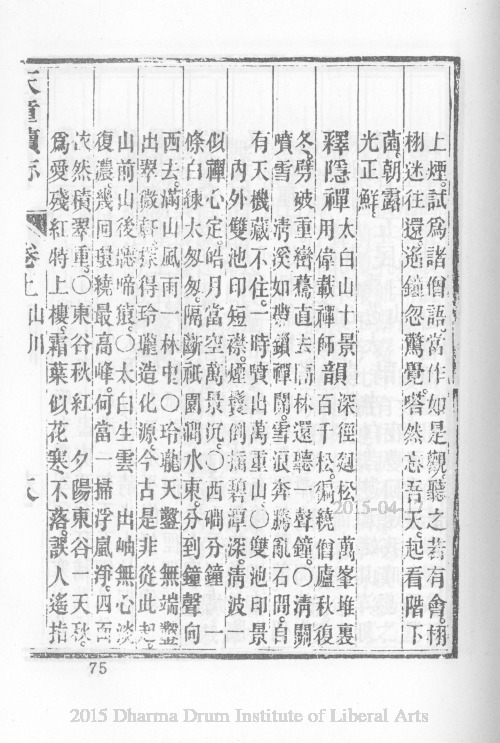 上煙。試爲諸僧語。當作如是觀聽之若有會。栩
栩迷往還遙鐘忽驚覺。嗒然忘吾天。起看階下
菌。朝露
光正鮮。
釋隱禪 太白山十景 用偉載禪師韻 深徑廻松 萬峯堆裏
百千松。徧繞僧廬秋復
冬。劈破重巒驀直去。隔林還聽一聲鐘。〇清關
噴雪 清溪如帶鎖禪關。雪浪奔騰亂石間。自
有天機藏不住。一時噴出萬重山。〇雙池印景
內外雙池印短襟。煙鬟倒插碧潭深。清波一
似禪心定。皓月當空萬景沉。〇西磵分鐘 一
條白練太匆匆。隔斷祇園澗水東。分到鐘聲向
西去。滿山風雨一林中。〇玲瓏天鑿 無端鑿
出翠微軒。探得玲瓏造化源。今古是非從此起。
山前山後聽啼猿。〇太白生雲 出岫無心淡
復濃。幾回環繞最高峰。何當一掃浮嵐淨。四面
依然積翠重。〇東谷秋紅 夕陽東谷一天秋。
爲愛殘紅特上樓。霜葉似花寒不落。誤人遙指
天童續志 卷上 山川
75
2015-04-
2015 Dharma Drum Institute of Liberal Arts